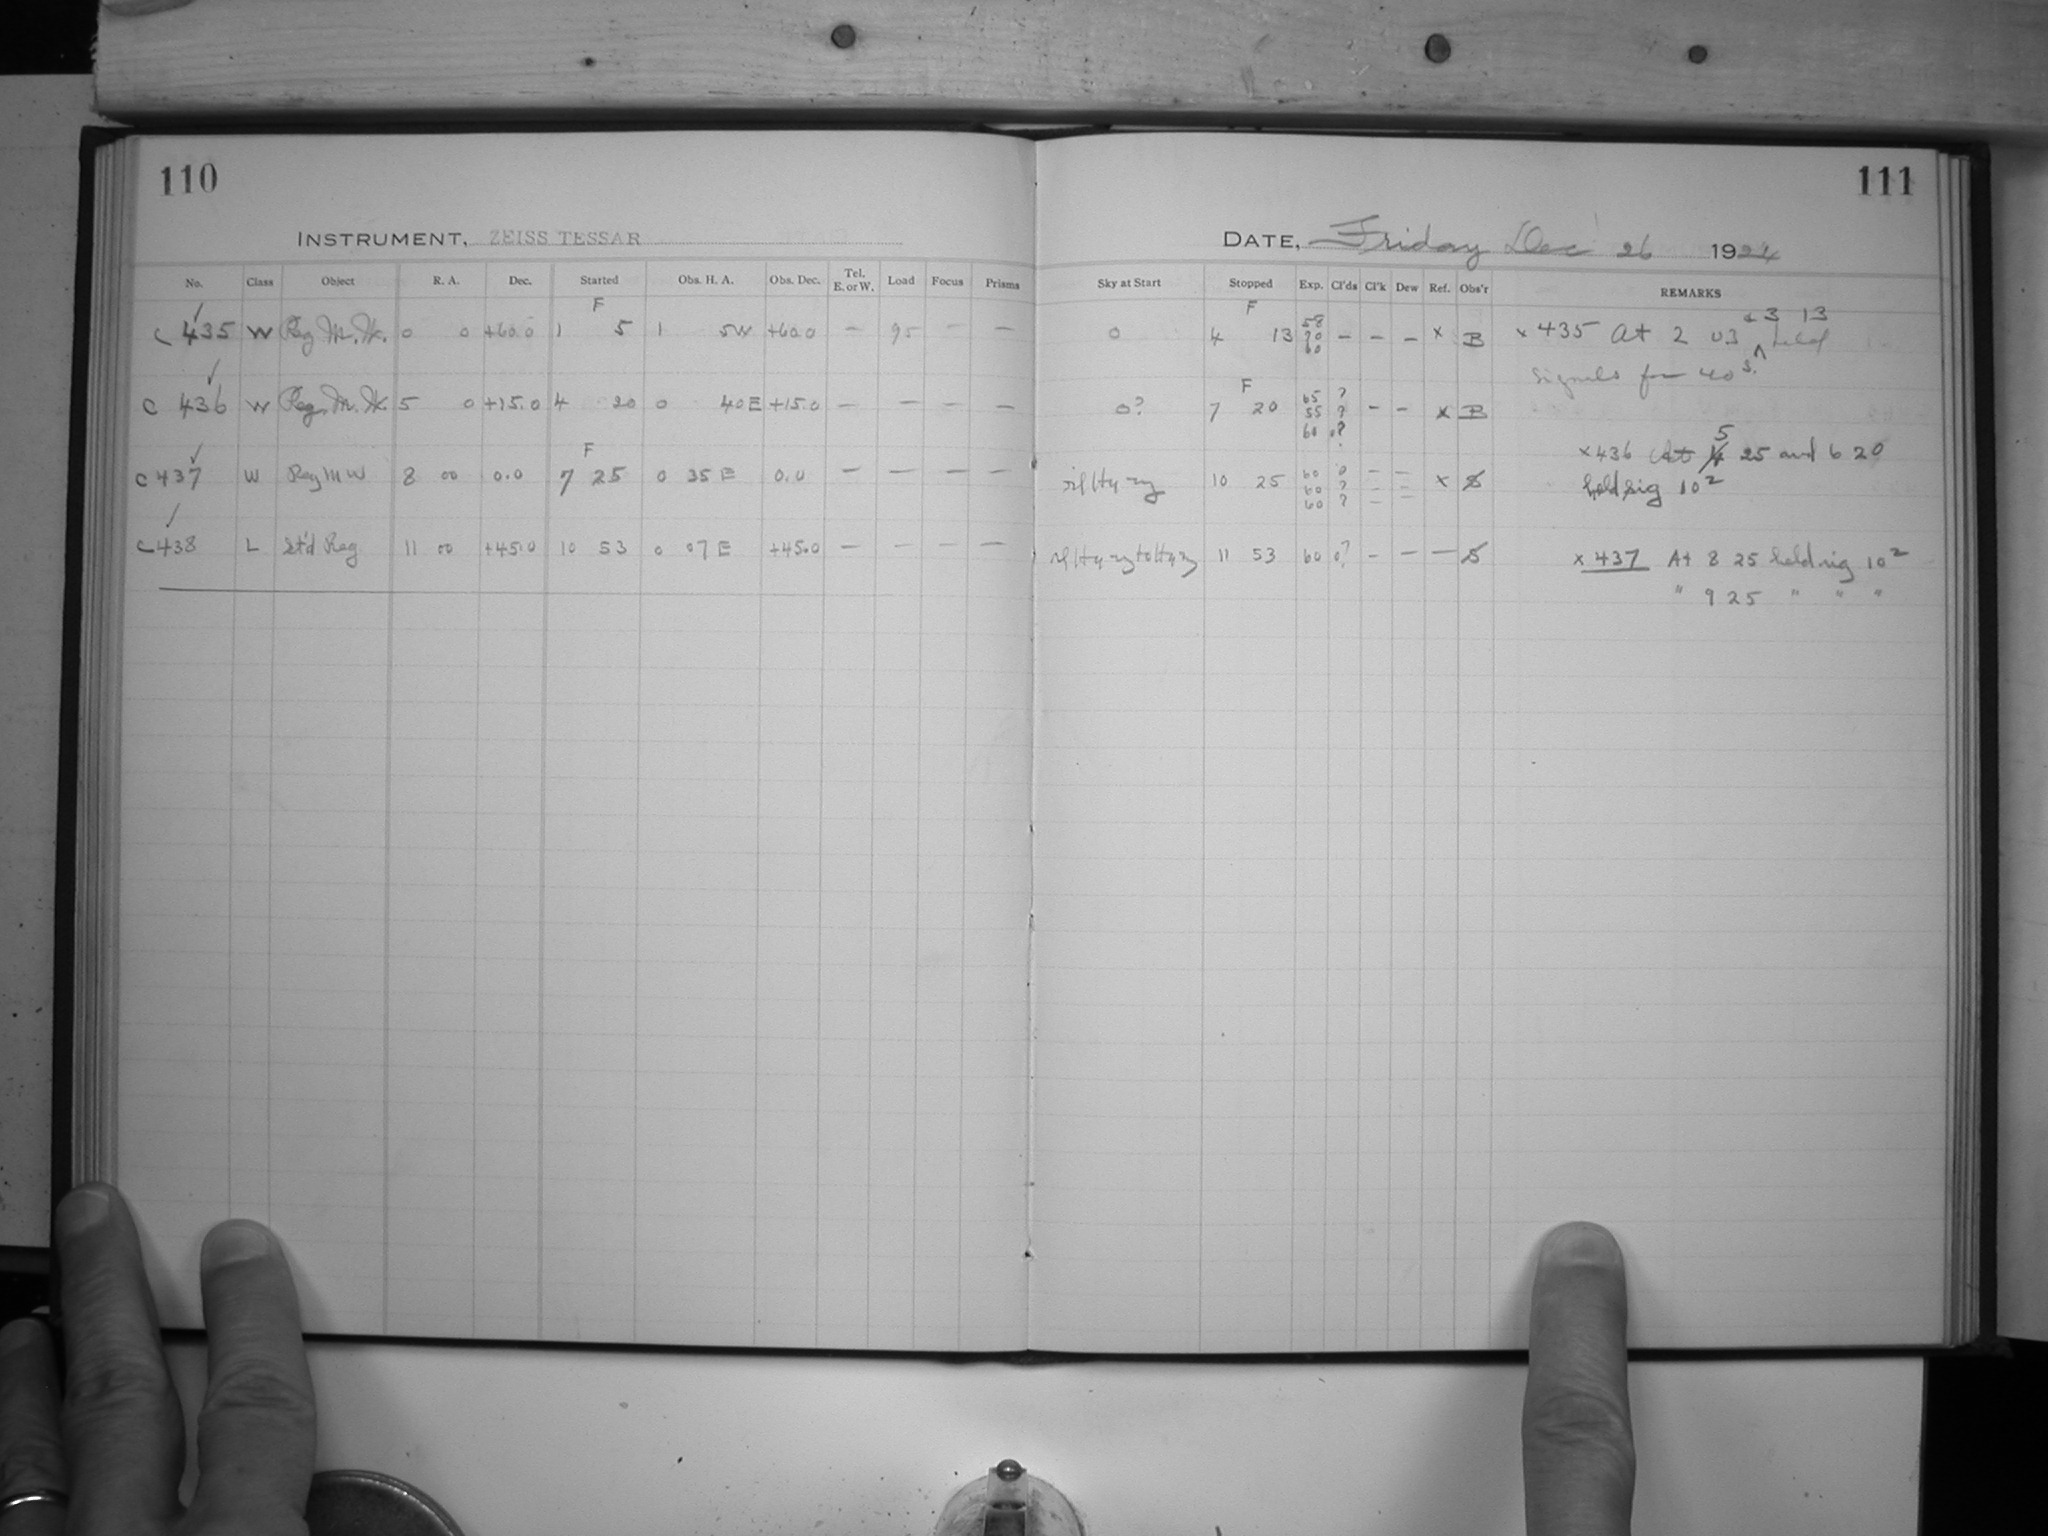 110
111
INSTRUMENT, ZEISS TESSAR
DATE, Friday Dec 26 1924
No. Class Object R. A. Dec. Started Obs. H. A. Obs. Dec. Tel. E. or W. Load Focus Prisms Sky at Start Stopped Exp. Cl'ds Cl'k Dew Ref. Obs'r REMARKS
F F 58 & 3 13
C 435 W Reg M.W. 0 0 +60.0 1 5 1 5W +60.0 — 95 — — 0 4 13 — — — x B x 435 At 2 03 ^ held
60
signals for 40 s.
F 65 ?
C 436 W Reg. M.W. 5 0 +15.0 4 20 0 40E +15.0 — — — — 0? 7 20 55 ? — — x B
60 0?
F 5
x 436 At 4 25 and 6 20
C 437 W Reg M W 8 00 0.0 7 25 0 35 E 0.0 — — — — 10 25 60 0 — — x S held sig 10 2
60 ? — —
60 ? — —
C 438 L St'd Reg 11 00 +45.0 10 53 0 07 E +45.0 — — — — 11 53 60 0? — — — S x 437 At 8 25 held sig 10 2
" 9 25 " " "